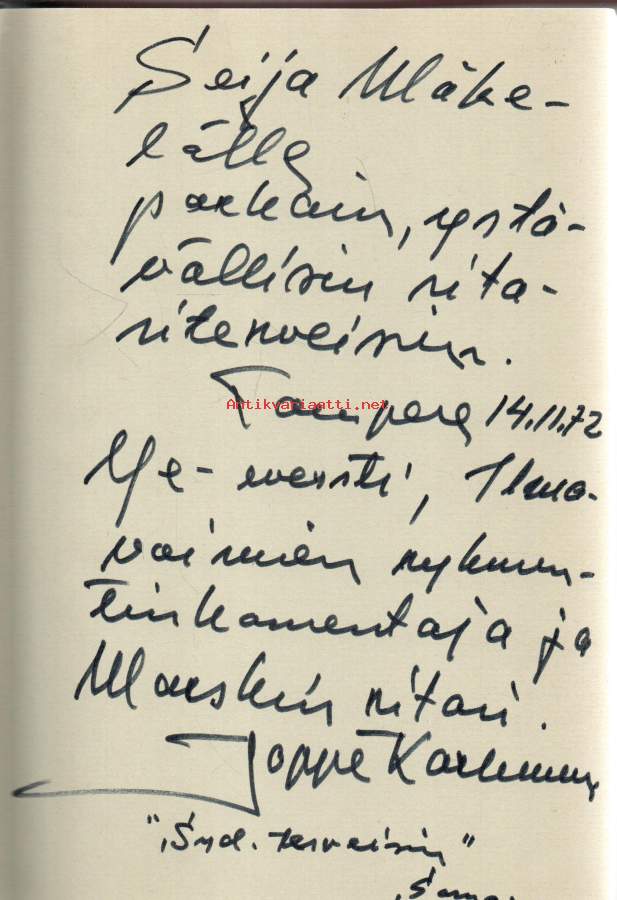 Seija Mäke-
lälle
parhain, ystä-
vällisin rita-
riterveisin.
Tampere 14.11.72
Antikvariaatti.net
Ye-eversti, Ilma-
voimien rykmen-
tinkomentaja ja
Marskin ritari.
Joppe Karhunen
"Syd. terveisin"
Sama